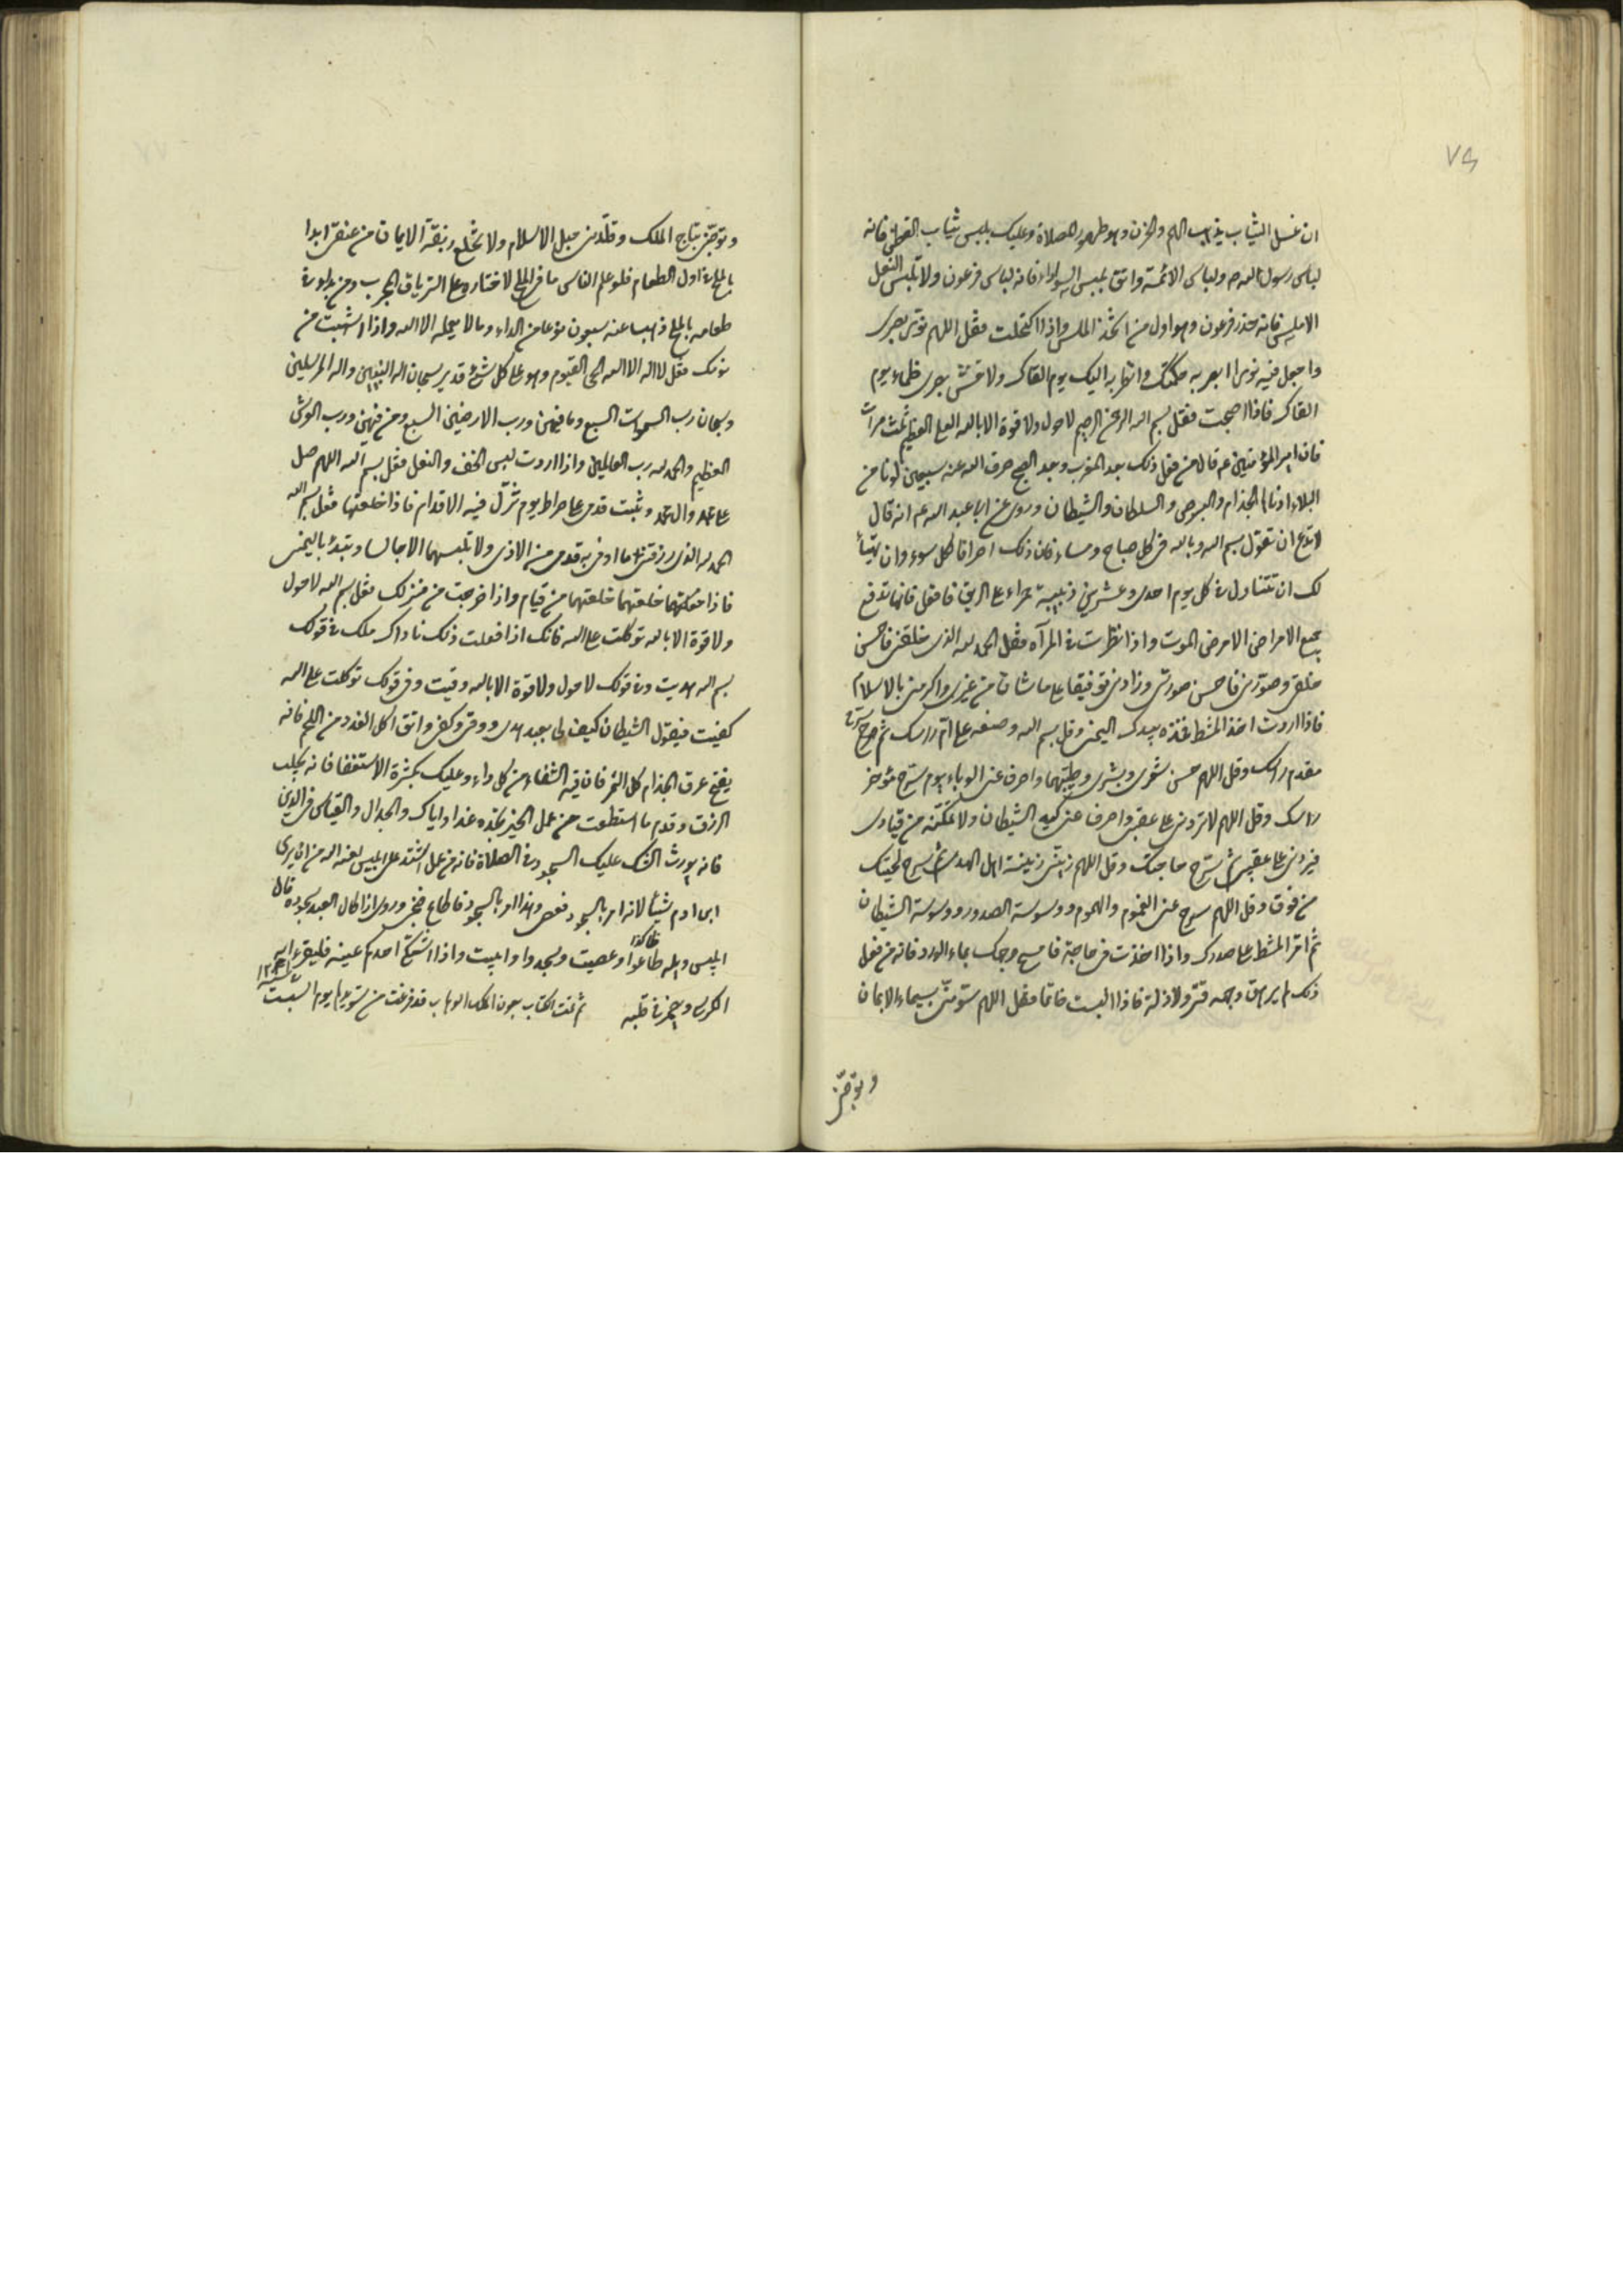 ٧٦
ان غسل الثياب يذهب الهم والحزن وهو طهور للصلاة وعليك بلبس ثياب القطن فانه
لباس رسول الله ص ولباس الائمة واتق بلبس السواد فانه لباس فرعون ولا تلبس النعل
الاملس فانه حذو فرعون وهو اول من اتخذ الملس واذا اكتحلت فقل اللهم نور بصرى
واجعل فيه نورا ابصر به حكمتك وانظر به اليك يوم القاك ولا تغش بصرى ظلماء يوم
القاك فاذا اصبحت فقل بسم الله الرحمن الرحيم لا حول ولا قوة الا بالله العلى العظيم ثلث مرات
فان امير المؤمنين عم قال من فعل ذلك بعد المغرب وبعد الصبح صرف الله عنه سبعين لونا من
البلاء ادناها الجذام والبرص والسلطان والشيطان وروى عن ابا عبد الله عم انه قال
لا تدع ان تقول بسم الله وبالله فى كل صباح ومساء فان ذلك اصرافا لكل سوء وان تهيأ
لك ان تتناول فى كل يوم احدى وعشرين زبيبة حمراء على الريق فافعل فانها تدفع
جميع الامراض الا مرض الموت واذا نظرت فى المرآه فقل الحمد لله الذى خلقنى فاحسن
خلقى وصورنى فاحسن صورتى وزادنى توفيقا على ما شان من غيرى واكرمنى بالاسلام
فاذا اردت اخذ المشط فخذه بيدك اليمنى وقل بسم الله وضعه على ام راسك ثم سرح
مقدم راسك وقل اللهم حسن شعرى وبشرى وطيبهما واصرف عنى الوباء ثم سرح مؤخر
راسك وقل اللهم لا تردنى على عقبى واصرف عنى كيد الشيطان ولا تمكنه من قيادى
فيردنى على عقبى ثم سرح حاجبك وقل اللهم زينى زينة اهل الهدى ثم سرح لحيتك
من فوق وقل اللهم سرح عنى الغموم والهموم ووسوسة الصدور ووسوسة الشيطان
ثم امر المشط على صدرك واذا اخذت فى حاجة فامسح وجهك بماء الورد فانه من فعل
ذلك لم يرهق وجهه قتر ولا ذلة فاذا البست خاتما فقل اللهم سومنى بسيماء الايمان
وتوجنى
وتوجنى بتاج الملك وقلدنى حبل الاسلام ولا تخلع ربقة الايمان من عنقى ابدا
بالملح فى اول الطعام فلو علم الناس ما فى الملح لاختاروه على الترياق المجرب ومن بدا فى
طعامه بالملح ذهب عنه سبعون نوعا من الداء وما لا يعلمه الا الله واذا انتبهت من
نومك فقل لا اله الا الله الحى القيوم وهو على كل شئ قدير سبحان اله النبيين واله المرسلين
وسبحان رب السموات السبع وما فيهن ورب الارضين السبع ومن فيهن ورب العرش
العظيم والحمد لله رب العالمين واذا اردت لبس الخف والنعل فقل بسم الله اللهم صل
على محمد وال محمد وثبت قدمى على صراط يوم تزل فيه الاقدام فاذا خلعتها فقل بسم الله
الحمد لله الذى رزقنى ما اوقى به قدمى من الاذى ولا تلبسهما الا جالسا وتبتدئ باليمنى
فاذا خلعتهما خلعتهما من قيام واذا خرجت من منزلك فقل بسم الله لا حول
ولا قوة الا بالله توكلت على الله فانك اذا فعلت ذلك ناداك ملك فى قولك
بسم الله هديت وفى قولك لا حول ولا قوة الا بالله وقيت وفى قولك توكلت على الله
كفيت فيقول الشيطان كيف لى بعبد هدى ووقى وكفى واتق اكل الغدد من اللحم فانه
يفتح عرق الجذام كل التمر فان فيه الشفاء من كل داء وعليك بكثرة الاستغفار فانه يجلب
الرزق وقدم ما استطعت من عمل الخير تجده غدا واياك والجدال والقياس فى الدين
فانه يورث الشك عليك السجود فى الصلاة فانه من عمل اشتد على ابليس لعنه الله من ان يرى
ابن ادم شيئا لانه امر بالسجود فعصى وهذا امر بالسجود فاطاع فنجى وروى اذا اطال العبد سجوده قال
ابليس ويله طاعوا وعصيت وسجدوا وابيت واذا اشتكى احدكم عينه فليقرء اية
الكرسى وليضمر فى قلبه ثم تمت الكتاب بعون الملك الوهاب قد فرغت من تسويدها يوم السبت